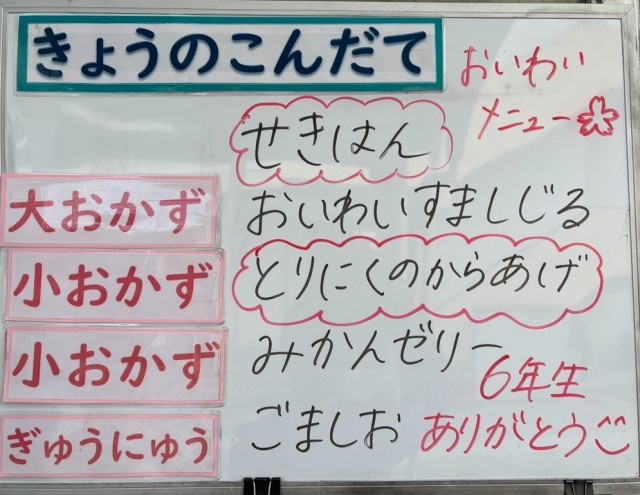 きょうのこんだて
おいわい
メニュー
せきはん
大おかず おいわいすましじる
小おかず とりにくのからあげ
小おかず みかんゼリー
6年生
ぎゅうにゅう ごましお ありがとう